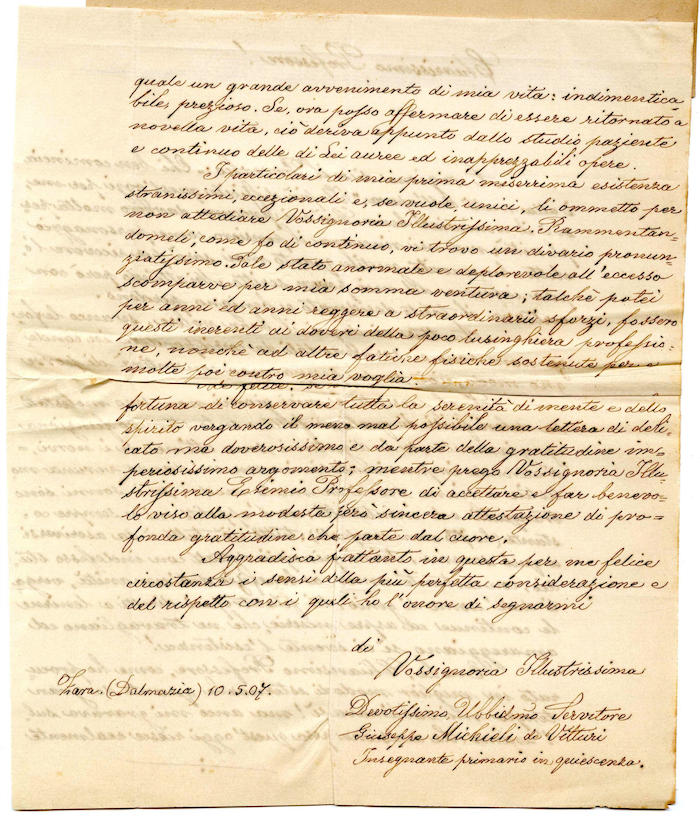 quale un grande avvenimento di mia vita: indimentica-
bile, prezioso. Se, ora posso affermare di essere ritornato a
novella vita, ciò deriva appunto dallo studio paziente
e continuo delle di Lei auree ed inapprezzabili opere.
I particolari di mia prima miserrima esistenza
stranissimi, eccezionali e, se vuole unici, li ommetto per
non attediare Vossignoria Illustrissima. Rammentan-
domeli, come fo di continuo, vi trovo un divario pronun-
ziatissimo. Tale stato anormale e deplorevole all'eccesso
scomparve per mia somma ventura; talchè potei
per anni ed anni reggere a straordinarii sforzi, fossero
questi inerenti ai doveri della poco lusinghiera professio-
ne, nonchè ad altre fatiche fisiche sostenute per e
molte poi contro mia voglia.
fortuna di conservare tutta la serenità di mente e dello
spirito vergando il meno mal possibile una lettera di deli-
cato ma doverosissimo e da parte della gratitudine im-
periosissimo argomento; mentre prego Vossignoria Illu-
strissima Esimio Professore di accettare e far benevo-
lo viso alla modesta però sincera attestazione di pro-
fonda gratitudine che parte dal cuore.
Aggradisca frattanto in questa per me felice
circostanza i sensi della più perfetta considerazione e
del rispetto con i quali ho l'onore di segnarmi
di
Vossignoria Illustrissima
Zara. (Dalmazia) 10.5.07.
Devotissimo Ubbidmo Servitore
Giuseppe Michieli de Vitturi
Insegnante primario in quiescenza.